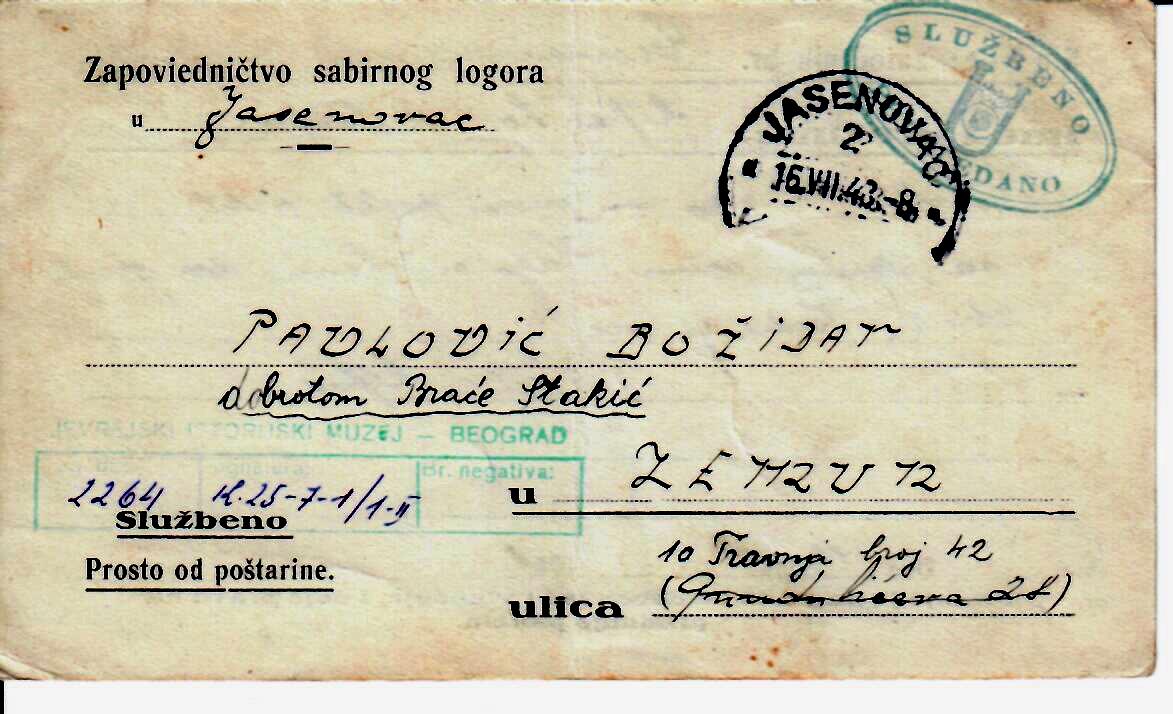 Zapoviedničtvo sabirnog logora
u Jasenovac
SLUŽBENO
JASENOVAC
2
16.VII.43.-8
PAVLOVIĆ BOŽIDAR
dobrotom Braće Stakić
JEVREJSKI ISTORIJSKI MUZEJ – BEOGRAD
Br. negativa:
2264 K.25-7-1/1-II
u ZEMUN
Službeno
Prosto od poštarine.
10 Travnja broj 42
ulica (Gundulićeva 28)